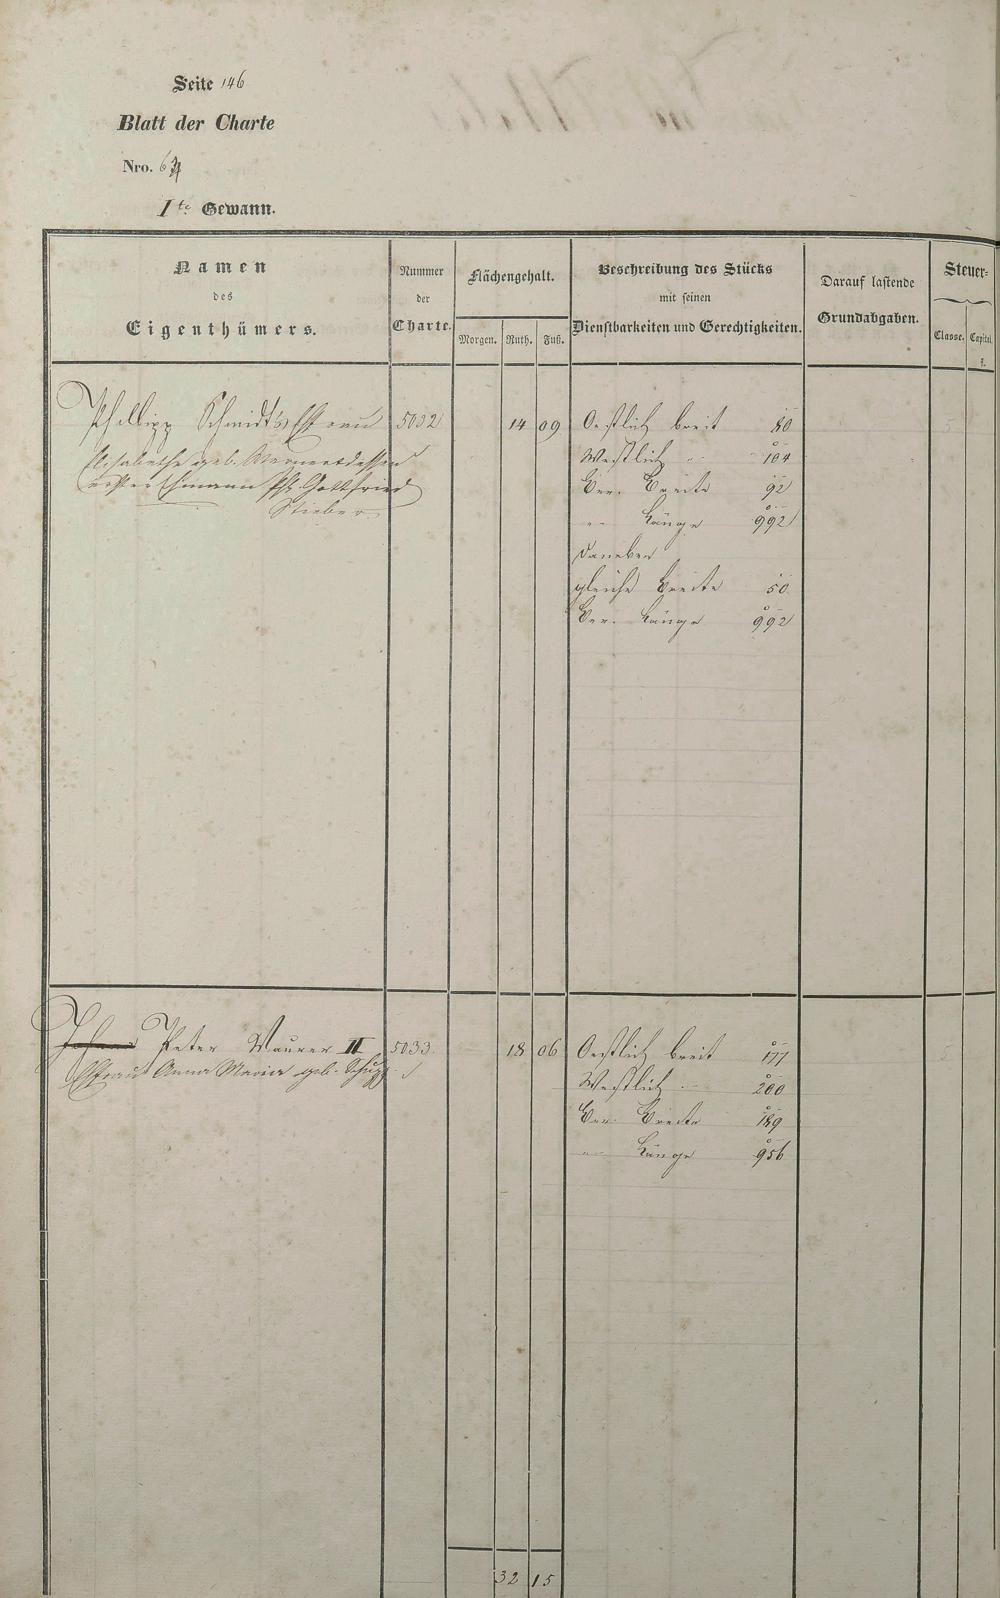 Seite 146
Blatt der Charte
Nro. 64
1te Gewann.
Namen des Eigenthümers.
Nummer der Charte.
Flächengehalt.
Morgen. Ruth. Fuß.
Beschreibung des Stücks mit seinen Dienstbarkeiten und Gerechtigkeiten.
Darauf lastende Grundabgaben.
Steuer-
Classe. Capital
fl.
Philipp Schmidt's Ehefrau 5032 14 09 Oestlich breit 80
Elisabethe geb. dessen Westlich " 104
erster Ehmann Ph. Gottfried Ver. Breite 92
Stieber " Länge 992
Daneben
gleiche Breite 50
Ver. Länge 992
Johann Peter Maurer II 5033 18 06 Oestlich breit 177
Ehefrau Anna Maria geb. Schupp Westlich " 200
Ver. Breite 189
" Länge 956
32 15